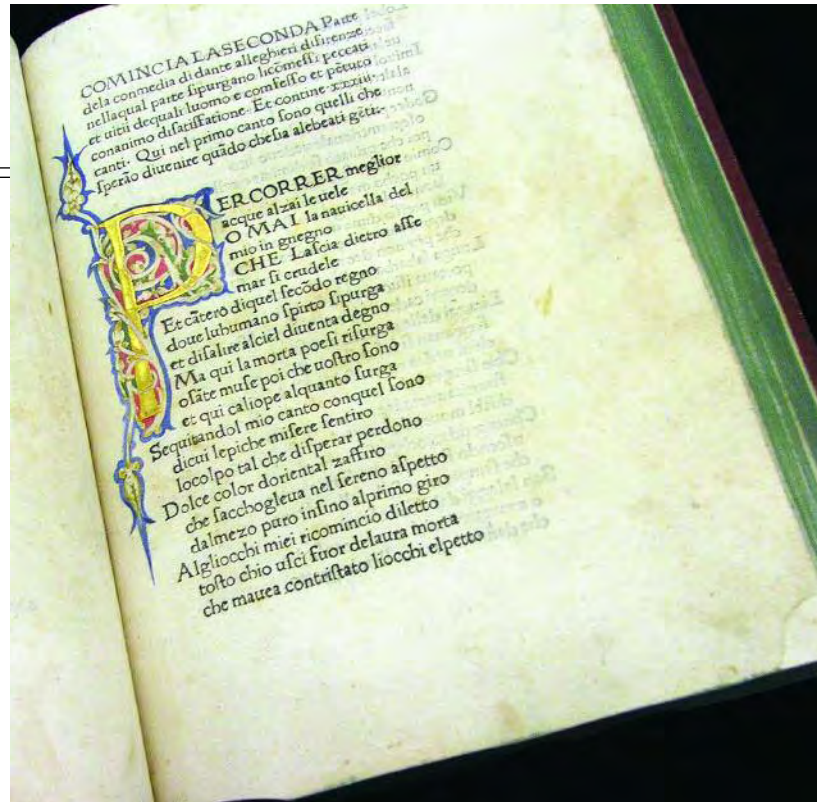 COMINCIA LASECONDA Parte
dela conmedia di dante alleghieri difirenze
nellaqual parte ſipurgano licōmeſſi peccati
et uitii dequali luomo e comfeſſo et pētuto
conanimo diſatiſfatione. Et contine .xxxiii.
canti. Qui nel primo canto ſono quelli che
ſperāo diuenire quādo cheſia alebeati gēti.
PERCORRER meglior
acque alzai le uele
O MAI la nauicella del
mio in gnegno
CHE Laſcia dietro aſſe
mar ſi crudele
Et cātero diquel ſecōdo regno
doue luhumano ſpirto ſipurga
et diſalire alciel diuenta degno
Ma qui la morta poeſi riſurga
oſāte muſe poi che uoſtro ſono
et qui caliope alquanto ſurga
Sequitandol mio canto conquel ſono
dicui lepiche miſere ſentiro
locolpo tal che diſperar perdono
Dolce color doriental zaffiro
che ſacchogleua nel ſereno aſpetto
dalmezo puro inſino alprimo giro
Algliocchi miei ricomincio diletto
toſto chio uſci fuor delaura morta
che mauea contriſtato liocchi elpetto